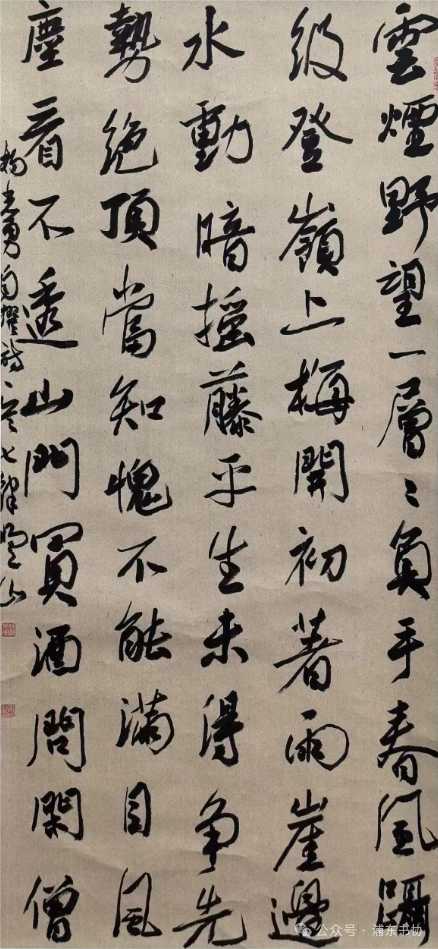 雲煙野望一層〻負手春風躡
級登嶺上梅開初著雨崖邊
水動暗搖藤平生未得爭先
勢絕頂當知愧不能滿目風
塵看不透山門買酒問閑僧
七律
公众号 · 浦东书协